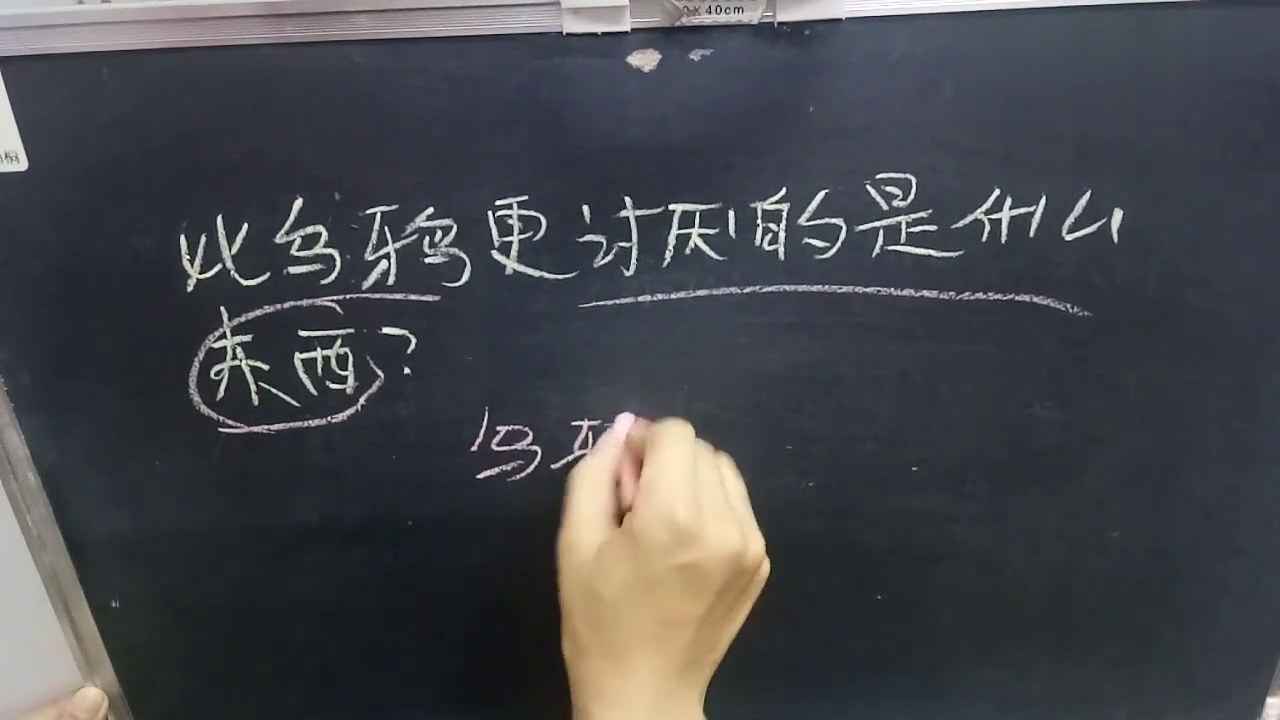 0×40cm
桐
比乌鸦更讨厌的是什么
东西?
乌